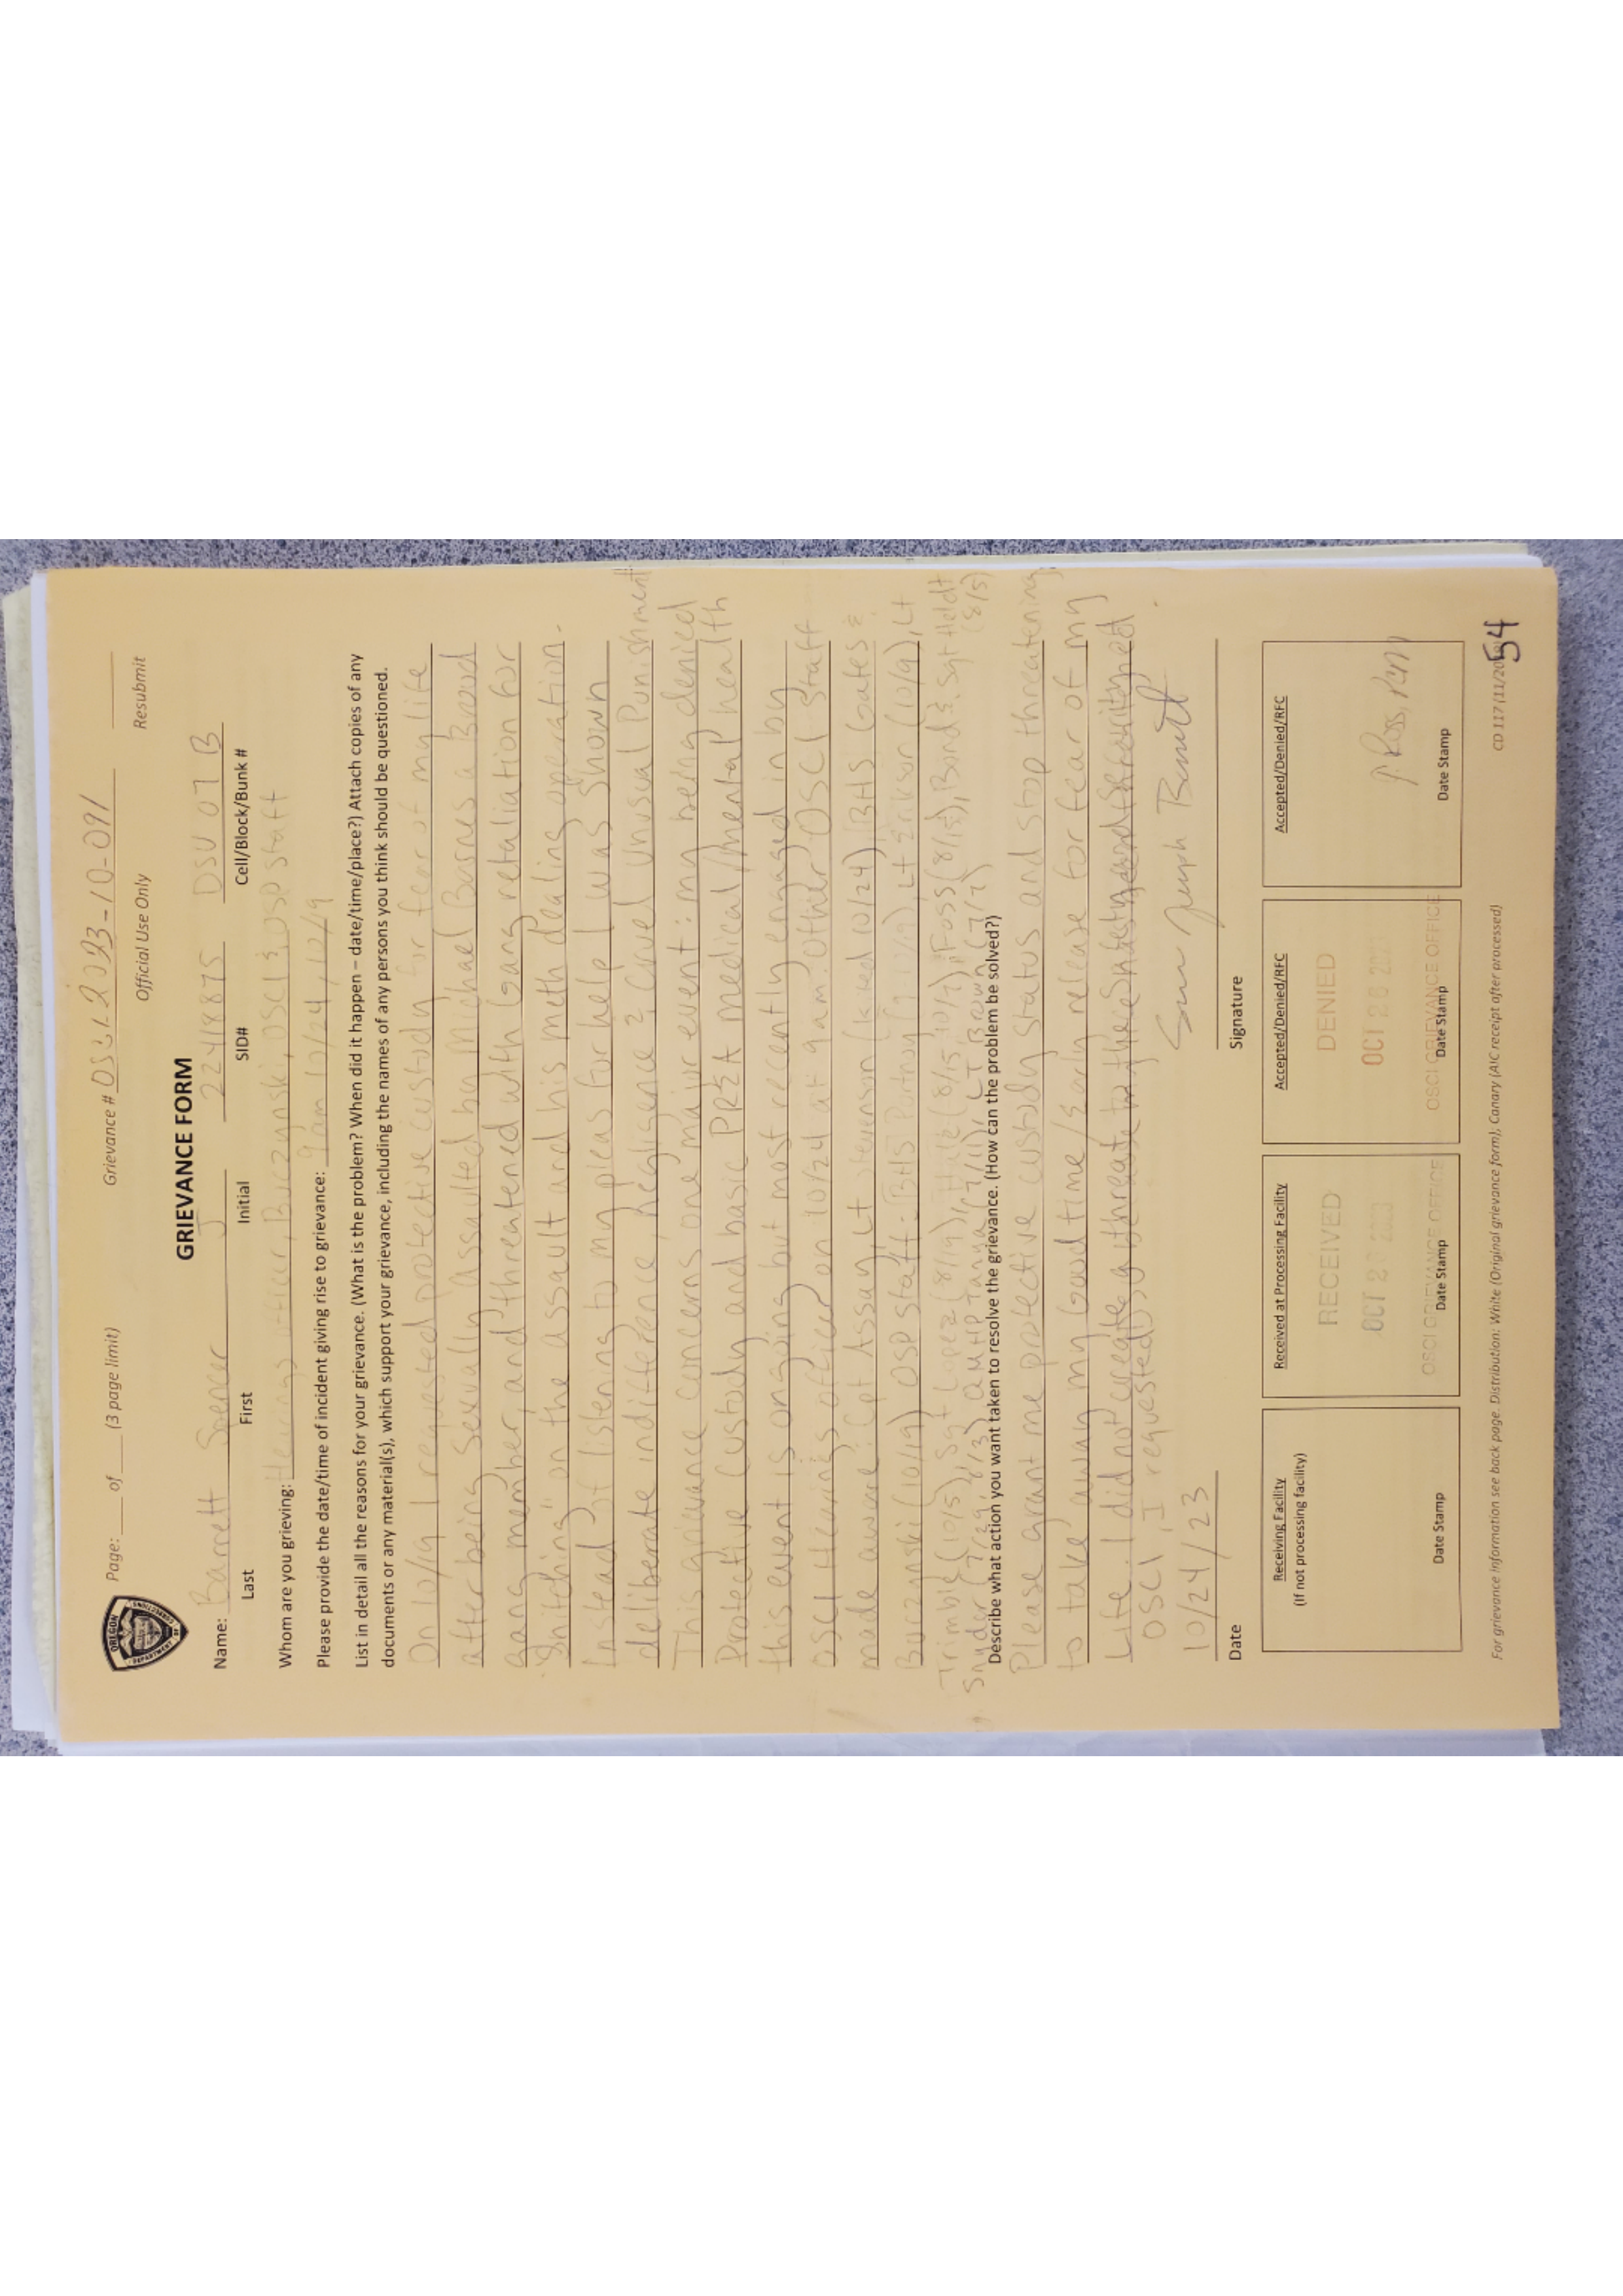 OREGON
DEPARTMENT OF
CORRECTIONS
Page: ____ of ____ (3 page limit)
Grievance #
Official Use Only
Resubmit
GRIEVANCE FORM
Name: Barrett Spencer J 22418875 DSU 07 B
Last First Initial SID# Cell/Block/Bunk #
Whom are you grieving: Hearings officer, Buczynski, OSCI & OSP staff
Please provide the date/time of incident giving rise to grievance: 9am 10/24, 10/19
List in detail all the reasons for your grievance. (What is the problem? When did it happen – date/time/place?) Attach copies of any
documents or any material(s), which support your grievance, including the names of any persons you think should be questioned.
On 10/19 I requested protective custody for fear of my life
after being sexually assaulted by Michael a
gang member, and threatened with Gang retaliation for
"Snitching" on the assault and his meth dealing operation.
Instead of listening to my pleas for help I was shown
deliberate indifference, negligence & cruel unusual Punishment
This grievance concerns one major event: my being denied
Protective Custody and basic PREA medical/mental health
this event is ongoing but most recently engaged in by
OSCI Hearings officer on 10/24 at 9am. Other OSCI Staff
made aware: Cpt Assay, Lt Stevenson (kited 10/24) BHS Gates &
(10/19) OSP staff: BHS Lt Erikson (10/9), Lt
Trimble (10/5), Sgt Lopez (8/19), Hale (8/15, 10/7), Foss (8/15), Bond & Sgt Heldt
Snyder (7/29, 8/3) QMHP Tanya (7/11), LT Brown (7/7) (8/5)
Describe what action you want taken to resolve the grievance. (How can the problem be solved?)
Please grant me protective custody status and stop threatening
to take away my Good time / Early release for fear of my
Life. I did not create a threat to the Safety and Security of
OSCI, I requested it.
10/24/23
Date Signature
Receiving Facility
(If not processing facility)
Date Stamp
Received at Processing Facility
RECEIVED
OCT 26 2023
OSCI GRIEVANCE OFFICE
Date Stamp
Accepted/Denied/RFC
DENIED
OCT 26 2023
OSCI GRIEVANCE OFFICE
Date Stamp
Accepted/Denied/RFC
Date Stamp
For grievance information see back page. Distribution: White (Original grievance form); Canary (AIC receipt after processed)
CD 117 (11/20
54